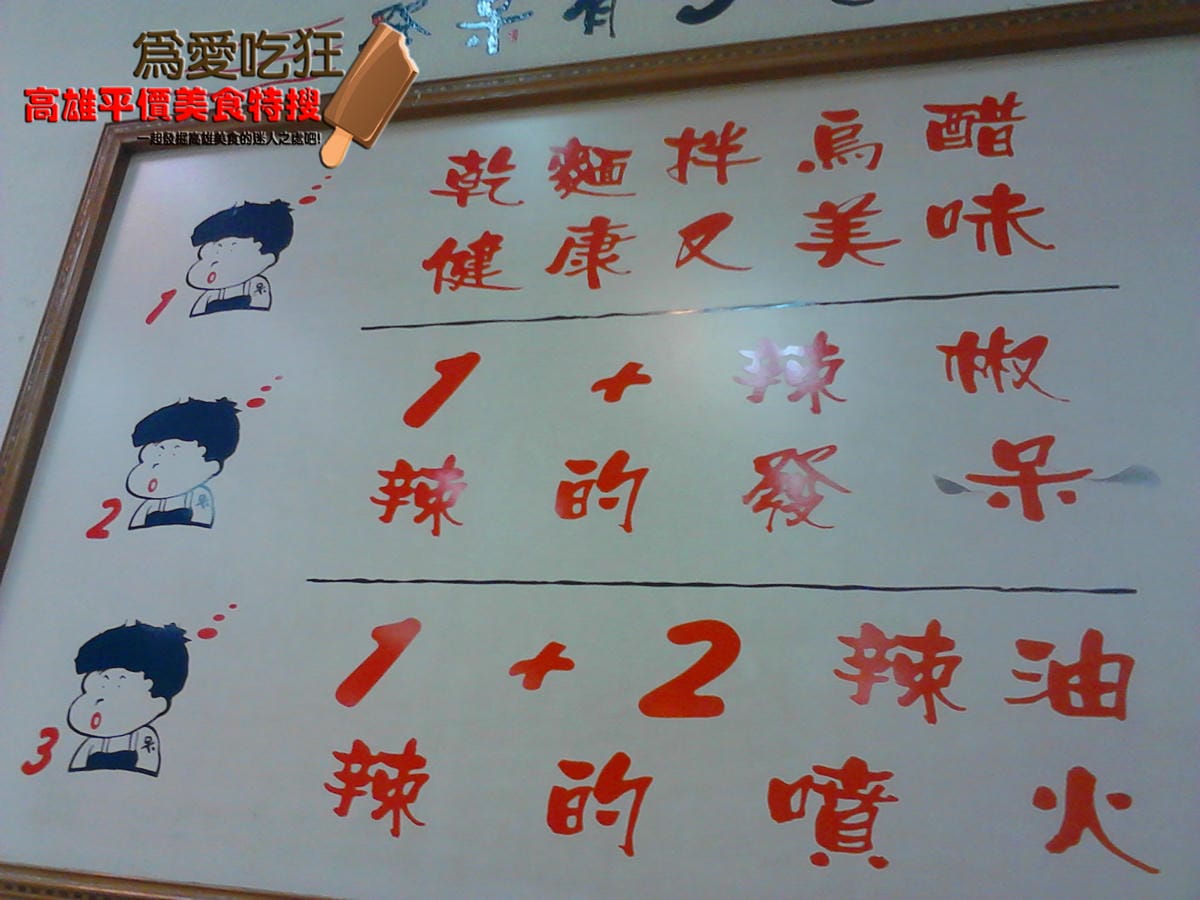 呆有
為愛吃狂
高雄平價美食特搜
一起發掘高雄美食的迷人之處吧!
乾麵拌烏醋
健康又美味
1
呆
1 + 辣椒
辣的發呆
2
呆
1 + 2 辣油
辣的噴火
3
呆